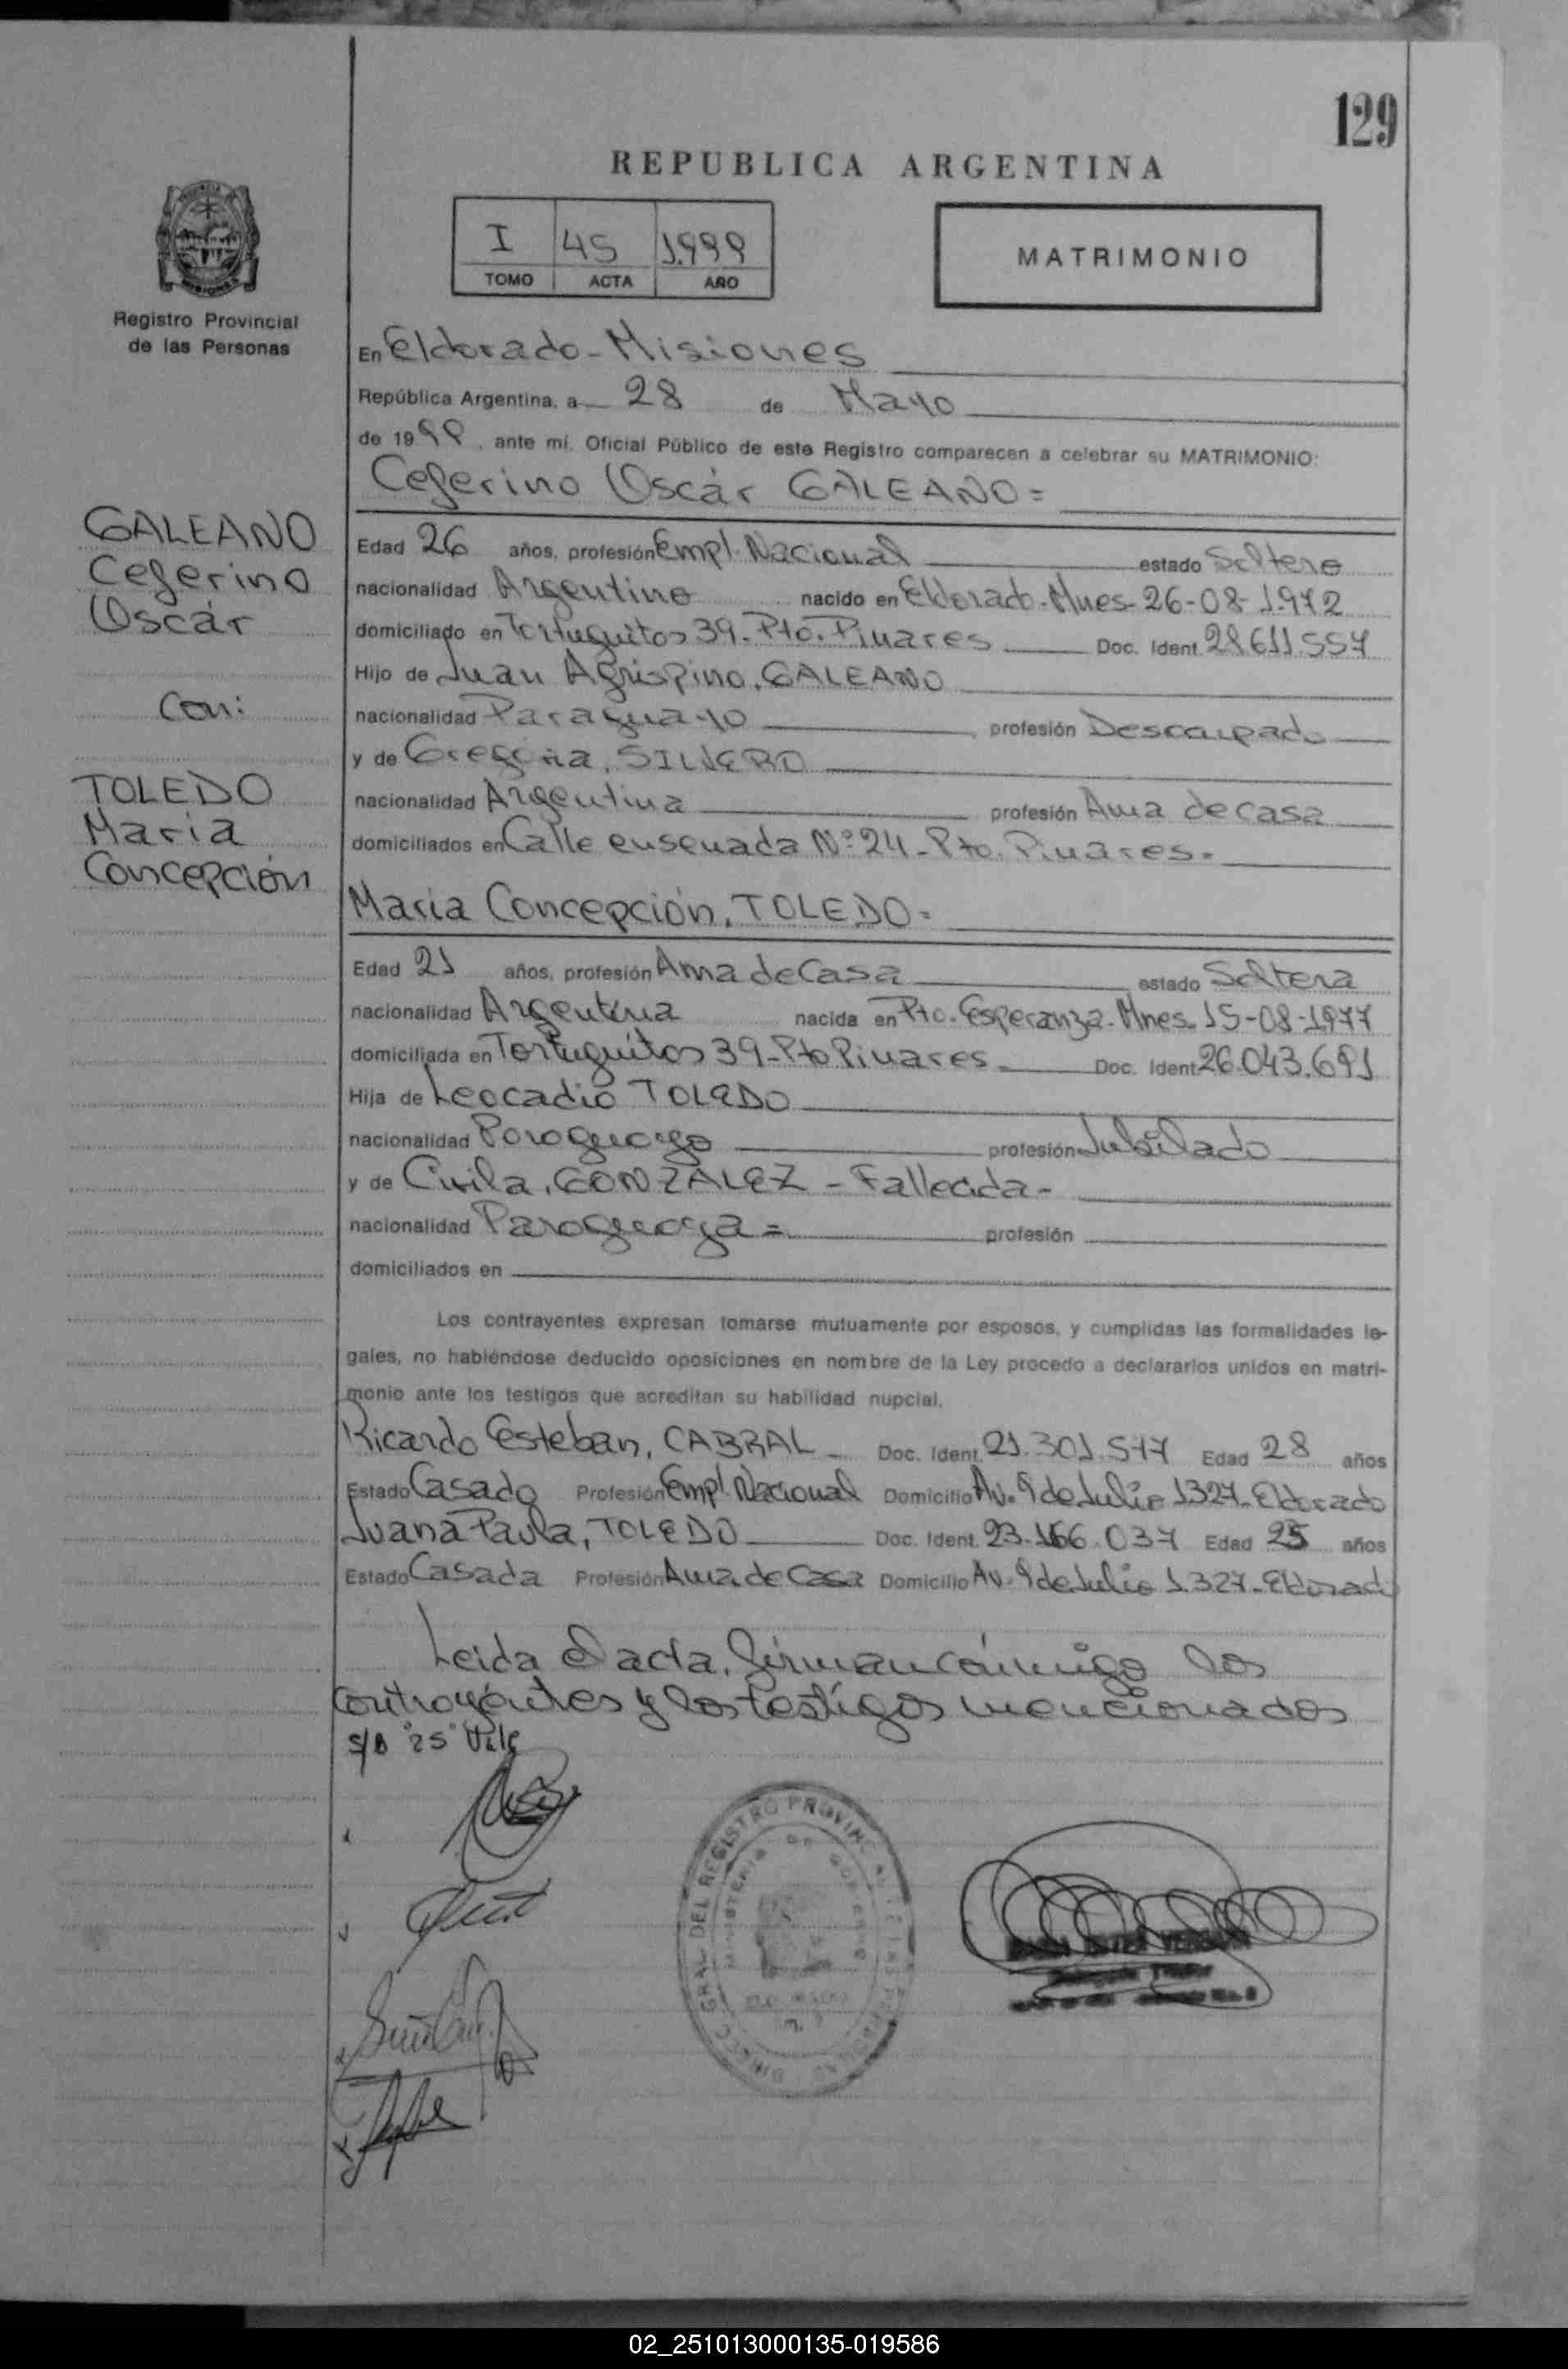 129
REPUBLICA ARGENTINA
I 45 1.999
TOMO ACTA AÑO
MATRIMONIO
Registro Provincial
de las Personas
En Eldorado - Misiones
República Argentina, a 28 de Mayo
de 1999, ante mí, Oficial Público de este Registro comparecen a celebrar su MATRIMONIO:
Ceferino Oscár GALEANO =
GALEANO
Ceferino
Oscár
Con:
TOLEDO
Maria
Concepción
Edad 26 años, profesión Empl. Nacional estado Soltero
nacionalidad Argentino nacido en Eldorado - Mnes - 26-08-1.972
domiciliado en Tortuguitos 39 - Pto. Pinares Doc. Ident. 28.611.557
Hijo de Juan Agrispino, GALEANO
nacionalidad Paraguayo profesión Desocupado
y de Gregoria, SILVERO
nacionalidad Argentina profesión Ama de casa
domiciliados en Calle ensenada Nº 24 - Pto. Pinares =
Maria Concepción, TOLEDO =
Edad 21 años, profesión Ama de Casa estado Soltera
nacionalidad Argentina nacida en Pto. Esperanza - Mnes - 15-08-1977
domiciliada en Tortuguitos 39 - Pto Pinares Doc. Ident. 26.043.691
Hija de Leocadio TOLEDO
nacionalidad Paraguayo profesión Jubilado
y de Cirila, GONZALEZ - Fallecida -
nacionalidad Paraguaya = profesión
domiciliados en
Los contrayentes expresan tomarse mutuamente por esposos, y cumplidas las formalidades le-
gales, no habiéndose deducido oposiciones en nombre de la Ley procedo a declararlos unidos en matri-
monio ante los testigos que acreditan su habilidad nupcial.
Ricardo Esteban, CABRAL Doc. Ident. 21.301.577 Edad 28 años
Estado Casado Profesión Empl. Nacional Domicilio Av. 9 de Julio 1327 - Eldorado
Juana Paula, TOLEDO Doc. Ident. 23.166.037 Edad 25 años
Estado Casada Profesión Ama de Casa Domicilio Av. 9 de Julio 1.327 - Eldorado
Leida el acta, firman conmigo los
contrayentes y los testigos mencionados
S/B "25" Vale
DIRECC GRAL DEL REGISTRO PROVINC DE LAS PERSONAS
MINISTERIO DE GOBIERNO
02_251013000135-019586